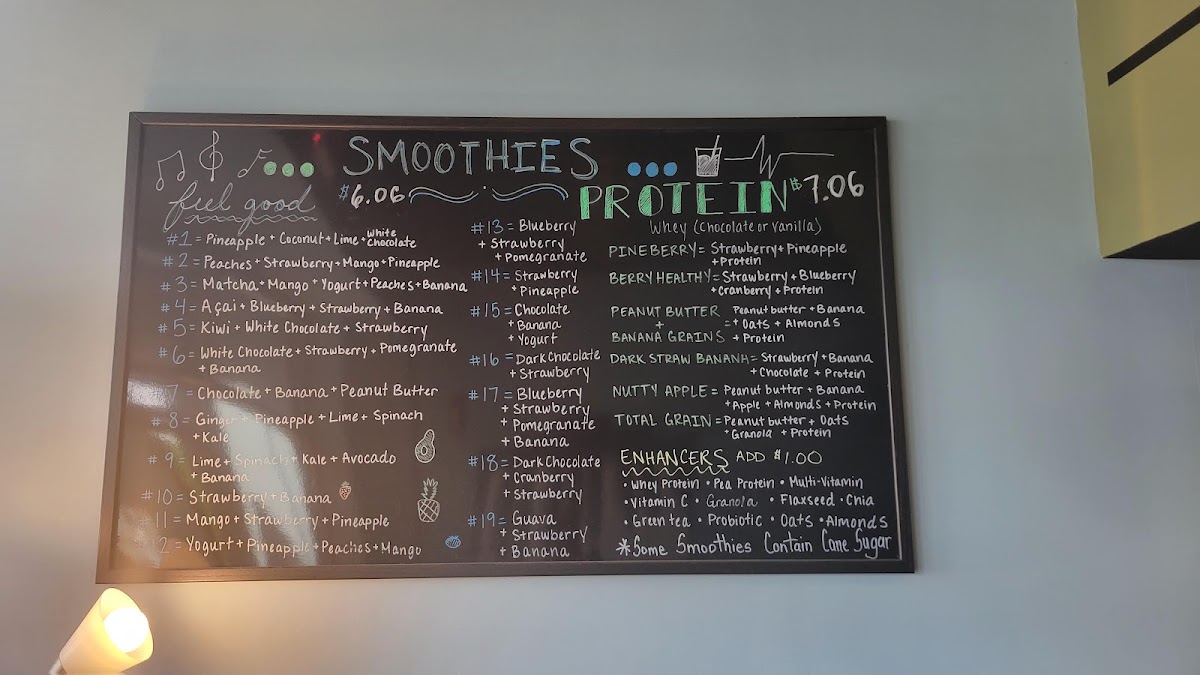 SMOOTHIES
feel good $6.06
#1 = Pineapple + Coconut + Lime + White Chocolate
#2 = Peaches + Strawberry + Mango + Pineapple
#3 = Matcha + Mango + Yogurt + Peaches + Banana
#4 = Açai + Blueberry + Strawberry + Banana
#5 = Kiwi + White Chocolate + Strawberry
#6 = White Chocolate + Strawberry + Pomegranate
+ Banana
#7 = Chocolate + Banana + Peanut Butter
#8 = Ginger + Pineapple + Lime + Spinach
+ Kale
#9 = Lime + Spinach + Kale + Avocado
+ Banana
#10 = Strawberry + Banana
#11 = Mango + Strawberry + Pineapple
12 = Yogurt + Pineapple + Peaches + Mango
#13 = Blueberry
+ Strawberry
+ Pomegranate
#14 = Strawberry
+ Pineapple
#15 = Chocolate
+ Banana
+ Yogurt
#16 = Dark Chocolate
+ Strawberry
#17 = Blueberry
+ Strawberry
+ Pomegranate
+ Banana
#18 = Dark Chocolate
+ Cranberry
+ Strawberry
#19 = Guava
+ Strawberry
+ Banana
PROTEIN $7.06
Whey (Chocolate or Vanilla)
PINEBERRY = Strawberry + Pineapple
+ Protein
BERRY HEALTHY = Strawberry + Blueberry
+ Cranberry + Protein
PEANUT BUTTER Peanut butter + Banana
+ = + Oats + Almonds
BANANA GRAINS + Protein
DARK STRAW BANANA = Strawberry + Banana
+ Chocolate + Protein
NUTTY APPLE = Peanut butter + Banana
+ Apple + Almonds + Protein
TOTAL GRAIN = Peanut butter + Oats
+ Granola + Protein
ENHANCERS ADD $1.00
• Whey Protein • Pea Protein • Multi-Vitamin
• Vitamin C • Granola • Flaxseed • Chia
• Green tea • Probiotic • Oats • Almonds
*Some Smoothies Contain Cane Sugar